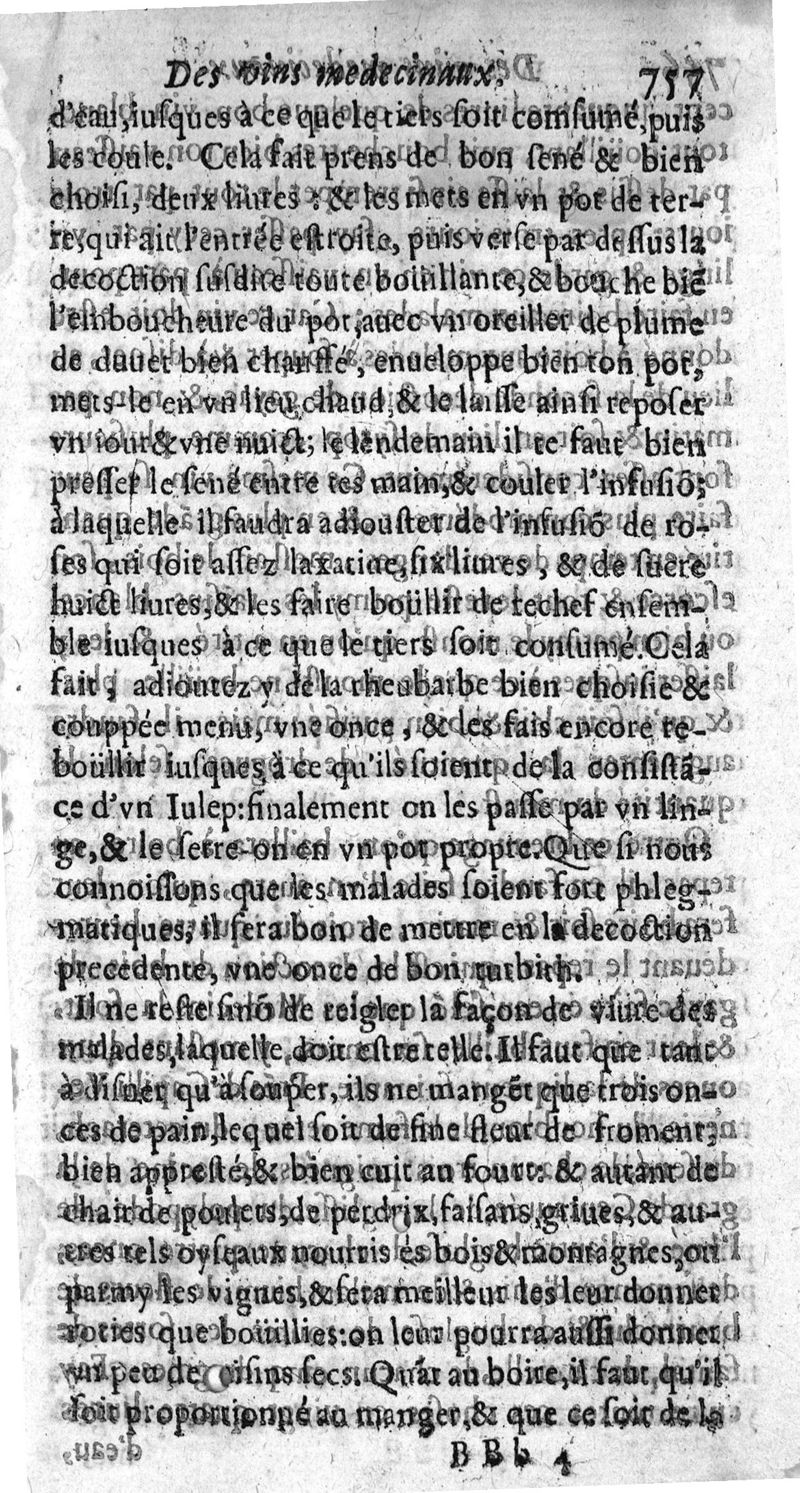 Des vins medecinaux. 757
d'eau, iusques à ce que le tiers soit comsumé, puis
les coule. Cela fait prens de bon sené & bien
choisi, deux liures : & les mets en vn pot de ter-
re, qui ait l'entrée estroite, puis verse par dessus la
decoction susdite toute boüillante, & bouche biẽ
l'emboucheure du pot, auec vn oreiller de plume
de duuet bien chauffé, enueloppe bien ton pot,
mets-le en vn lieu chaud, & le laisse ainsi reposer
vn iour & vne nuict; le lendemain il te faut bien
presser le sené entre tes main, & couler l'infusiõ;
à laquelle il faudra adiouster de l'infusiõ de ro-
ses qui soit assez laxatiue, six liures, & de sucre
huict liures, & les faire boüillir de rechef ensem-
ble iusques à ce que le tiers soit consumé. Cela
fait, adioutez y de la rheubarbe bien choisie &
couppée menu, vne once, & les fais encore re-
boüllir iusques à ce qu'ils soient de la consistã-
ce d'vn Iulep: finalement on les passe par vn lin-
ge, & le serre-on en vn pot propre. Que si nous
connoissons que les malades soient fort phleg-
matiques, il sera bon de mettre en la decoction
precedente, vne once de bon turbith.
Il ne reste sinõ de reigler la façon de viure des
malades, laquelle doit estre telle. Il faut que tant
à disner qu'à souper, ils ne mangẽt que trois on-
ces de pain, lequel soit de fine fleur de froment,
bien appresté, & bien cuit au fourt: & autant de
chair de poulets, de perdrix, faisans, griues, & au-
tres tels oyseaux nourris és bois & montagnes, ou
parmy les vignes, & sera meilleur les leur donner
roties que boüillies: on leur pourra aussi donner
vn peu de risins secs. Quãt au boire, il faut qu'il
soit proportionné au manger, & que ce soit de la
BBb 4
d'eau,